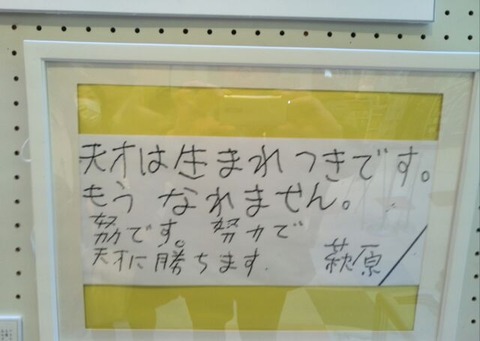 天才は生まれつきです。
もう なれません。
努です。努力で
天才に勝ちます.
萩原